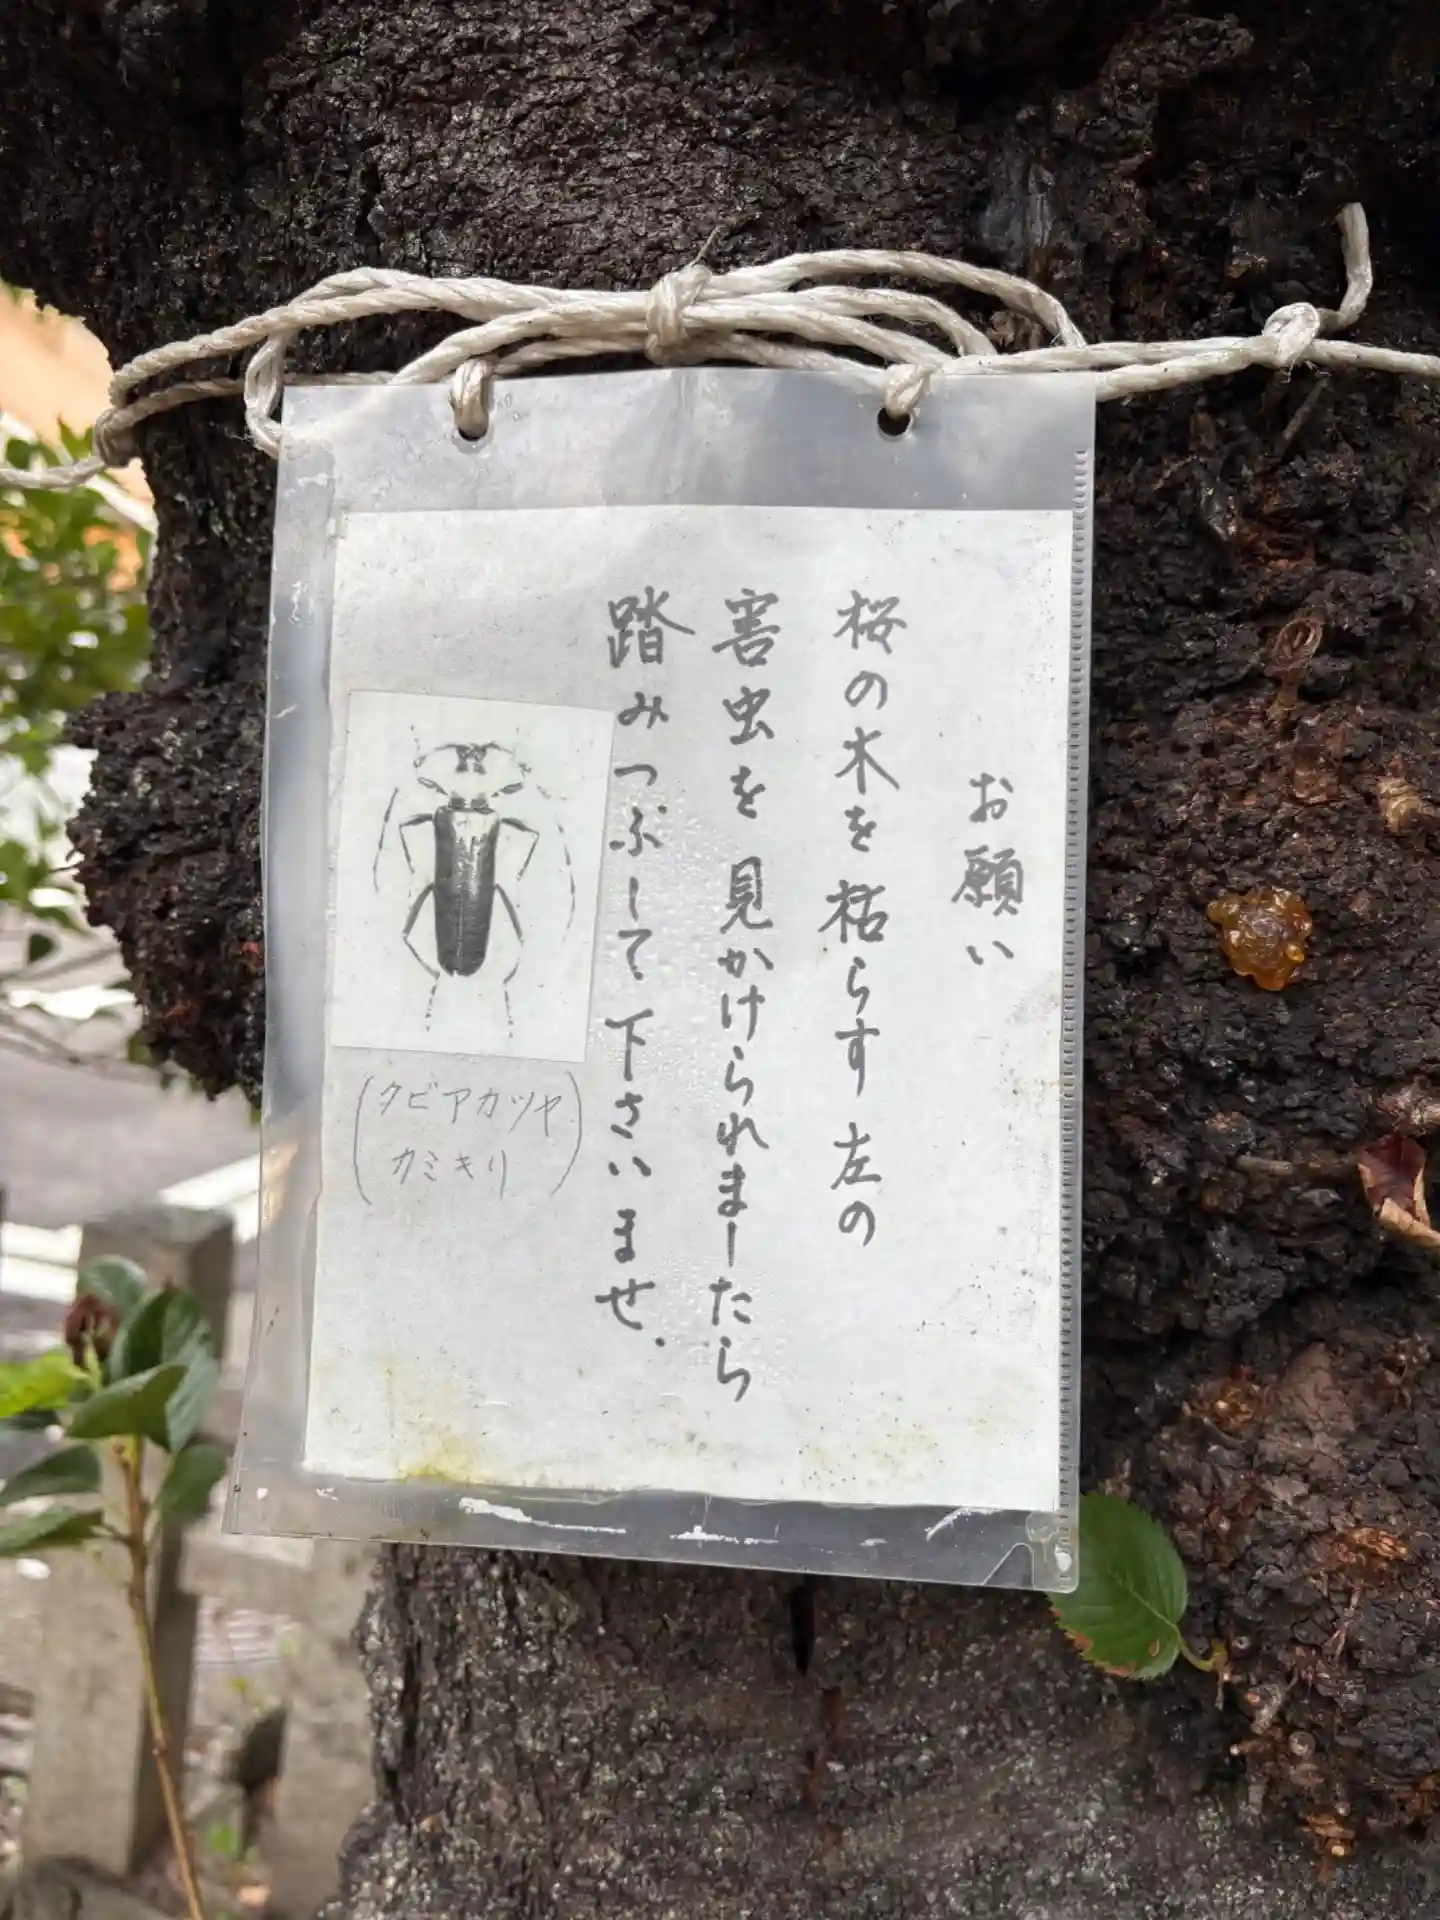 お願い
桜の木を枯らす左の
害虫を見かけられましたら
踏みつぶして下さいませ.
(クビアカツヤ
カミキリ)